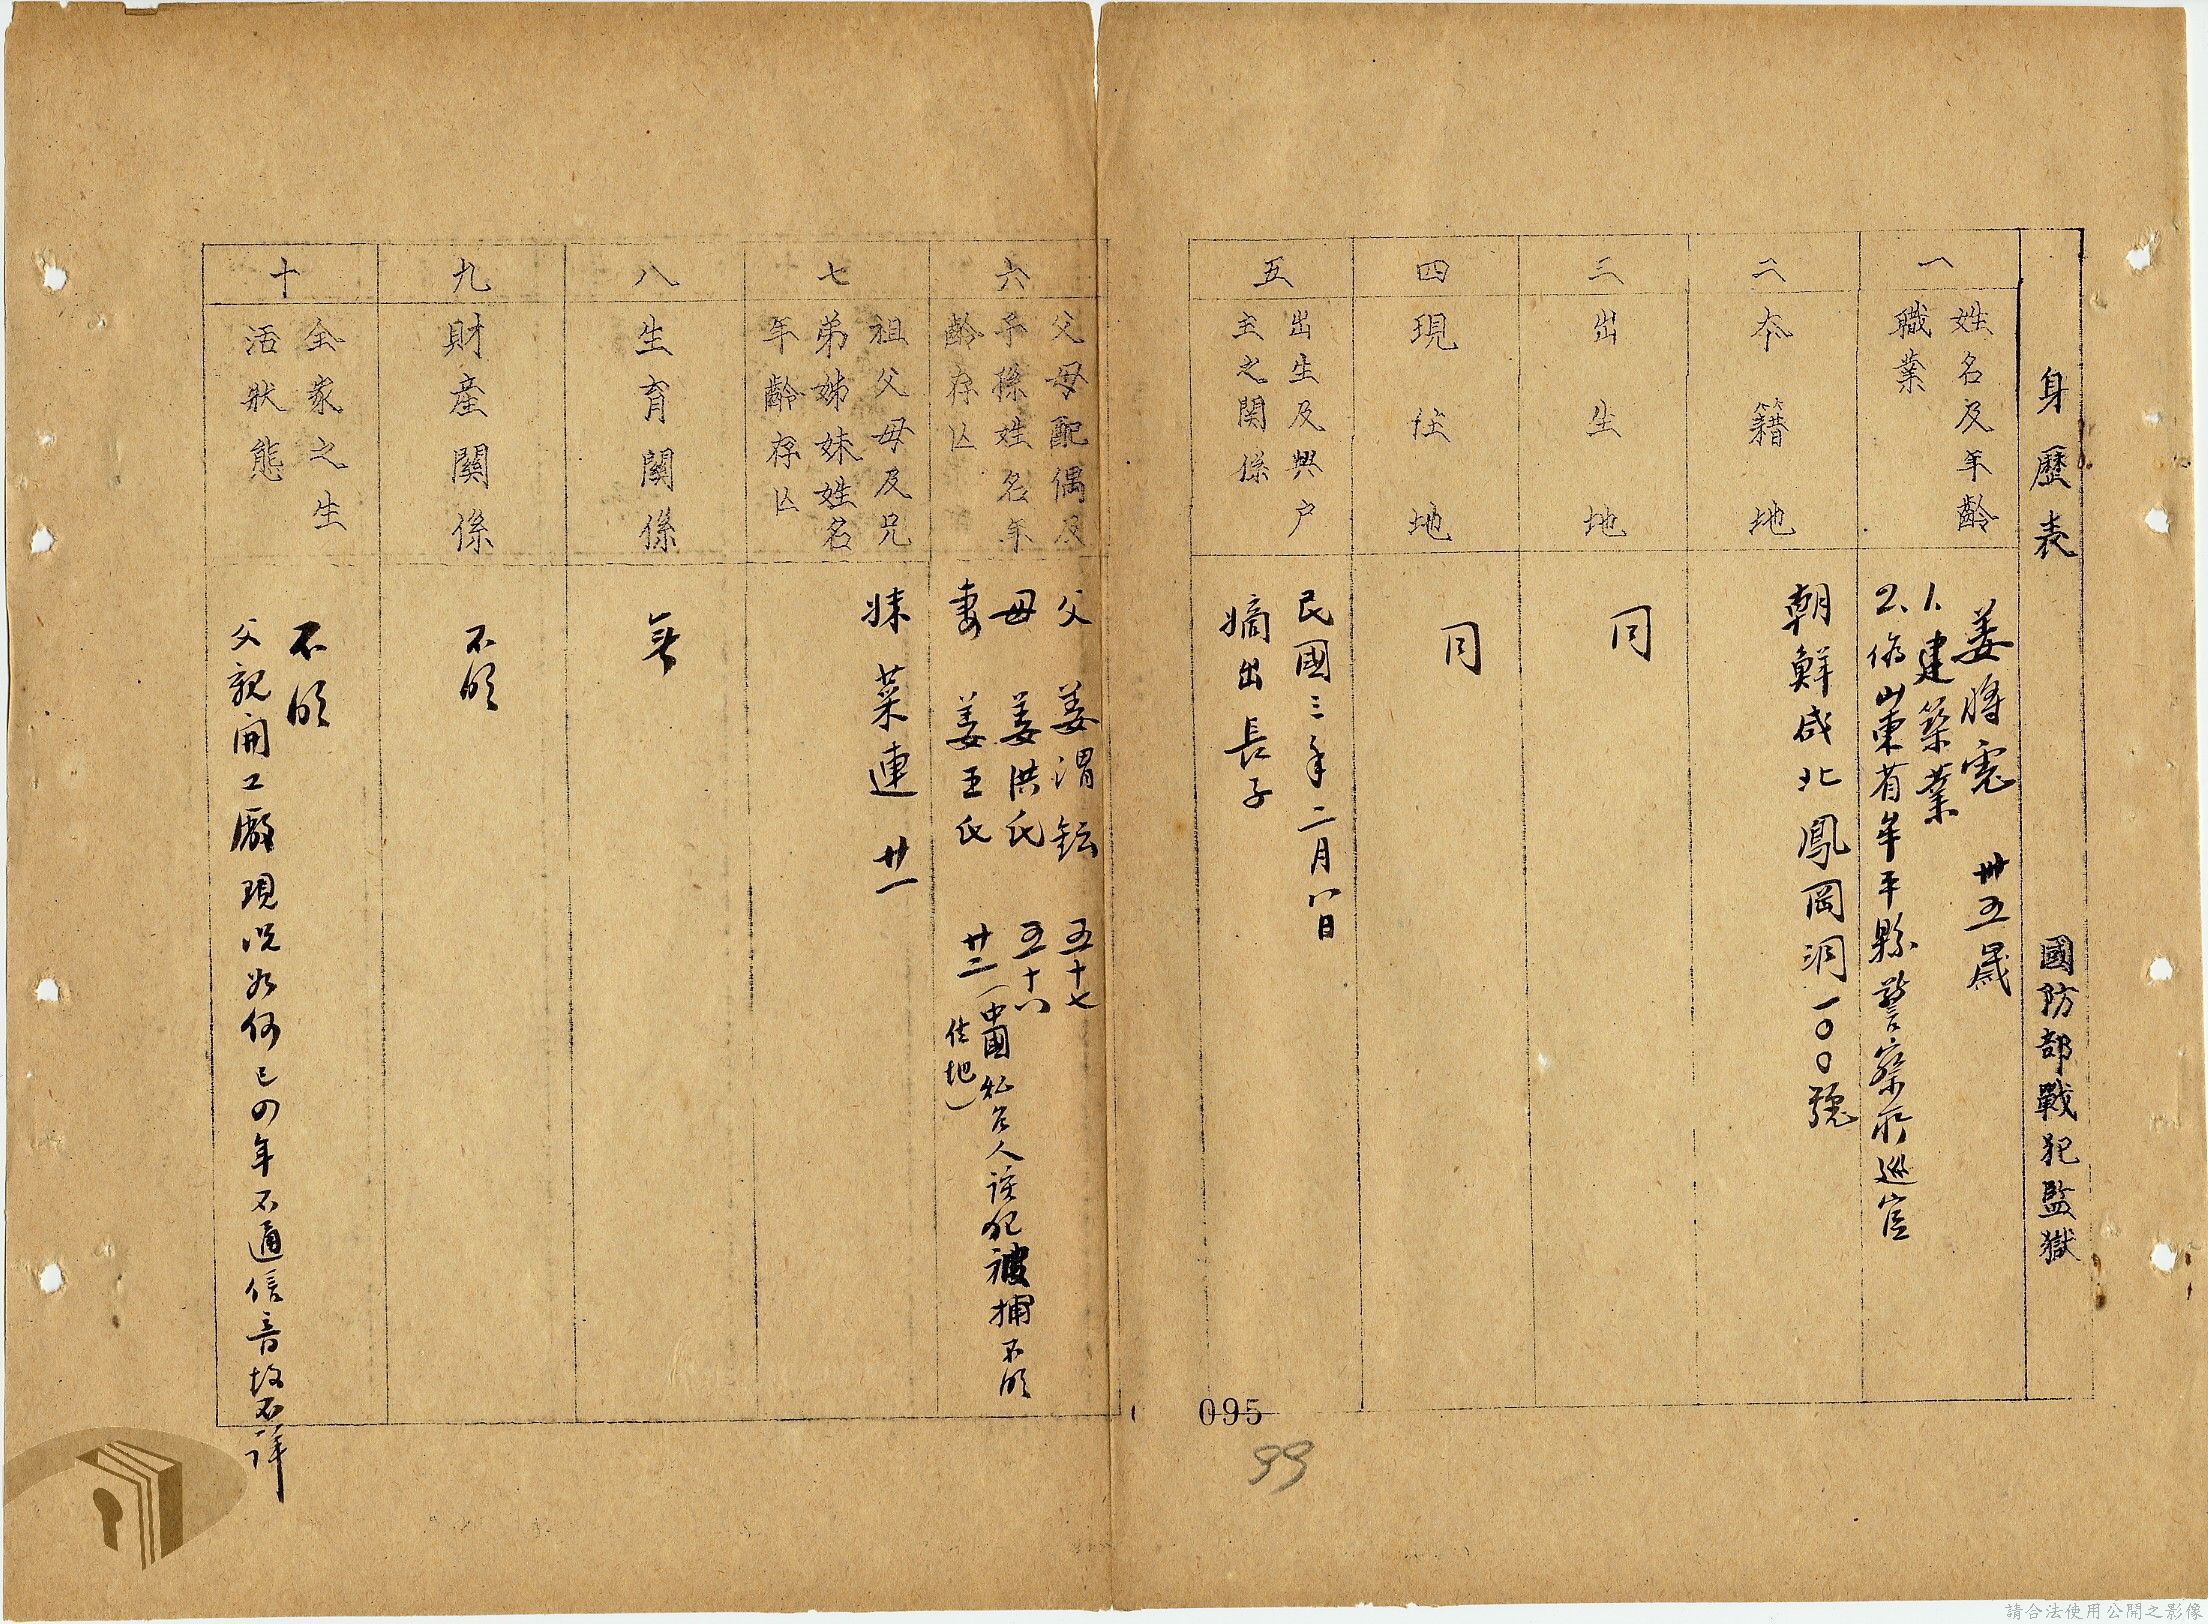 身歷表 國防部戰犯監獄
一
姓名及年齡
職業
姜將寬 卅五歲
1.建築業
2.偽山東省牟平縣警察所巡官
二
本籍地
朝鮮咸北鳳岡洞一〇〇號
三
出生地
同
四
現住地
同
五
出生及與户
主之関係
民國三年二月八日
嫡出長子
六
父母配偶及
子孫姓名年
齡存亡
父 姜渭鈜 五十七
母 姜洪氏 五十八
妻 姜王氏 廿二(中國 人該犯被捕不明
住地)
七
祖父母及兄
弟姊妹姓名
年齡存亡
妹 菜連 廿一
八
生育関係
無
九
財產關係
不明
十
全家之生
活狀態
不明
父親開工廠現況如何已四年不通信音故不詳
095
99
請合法使用公開之影像